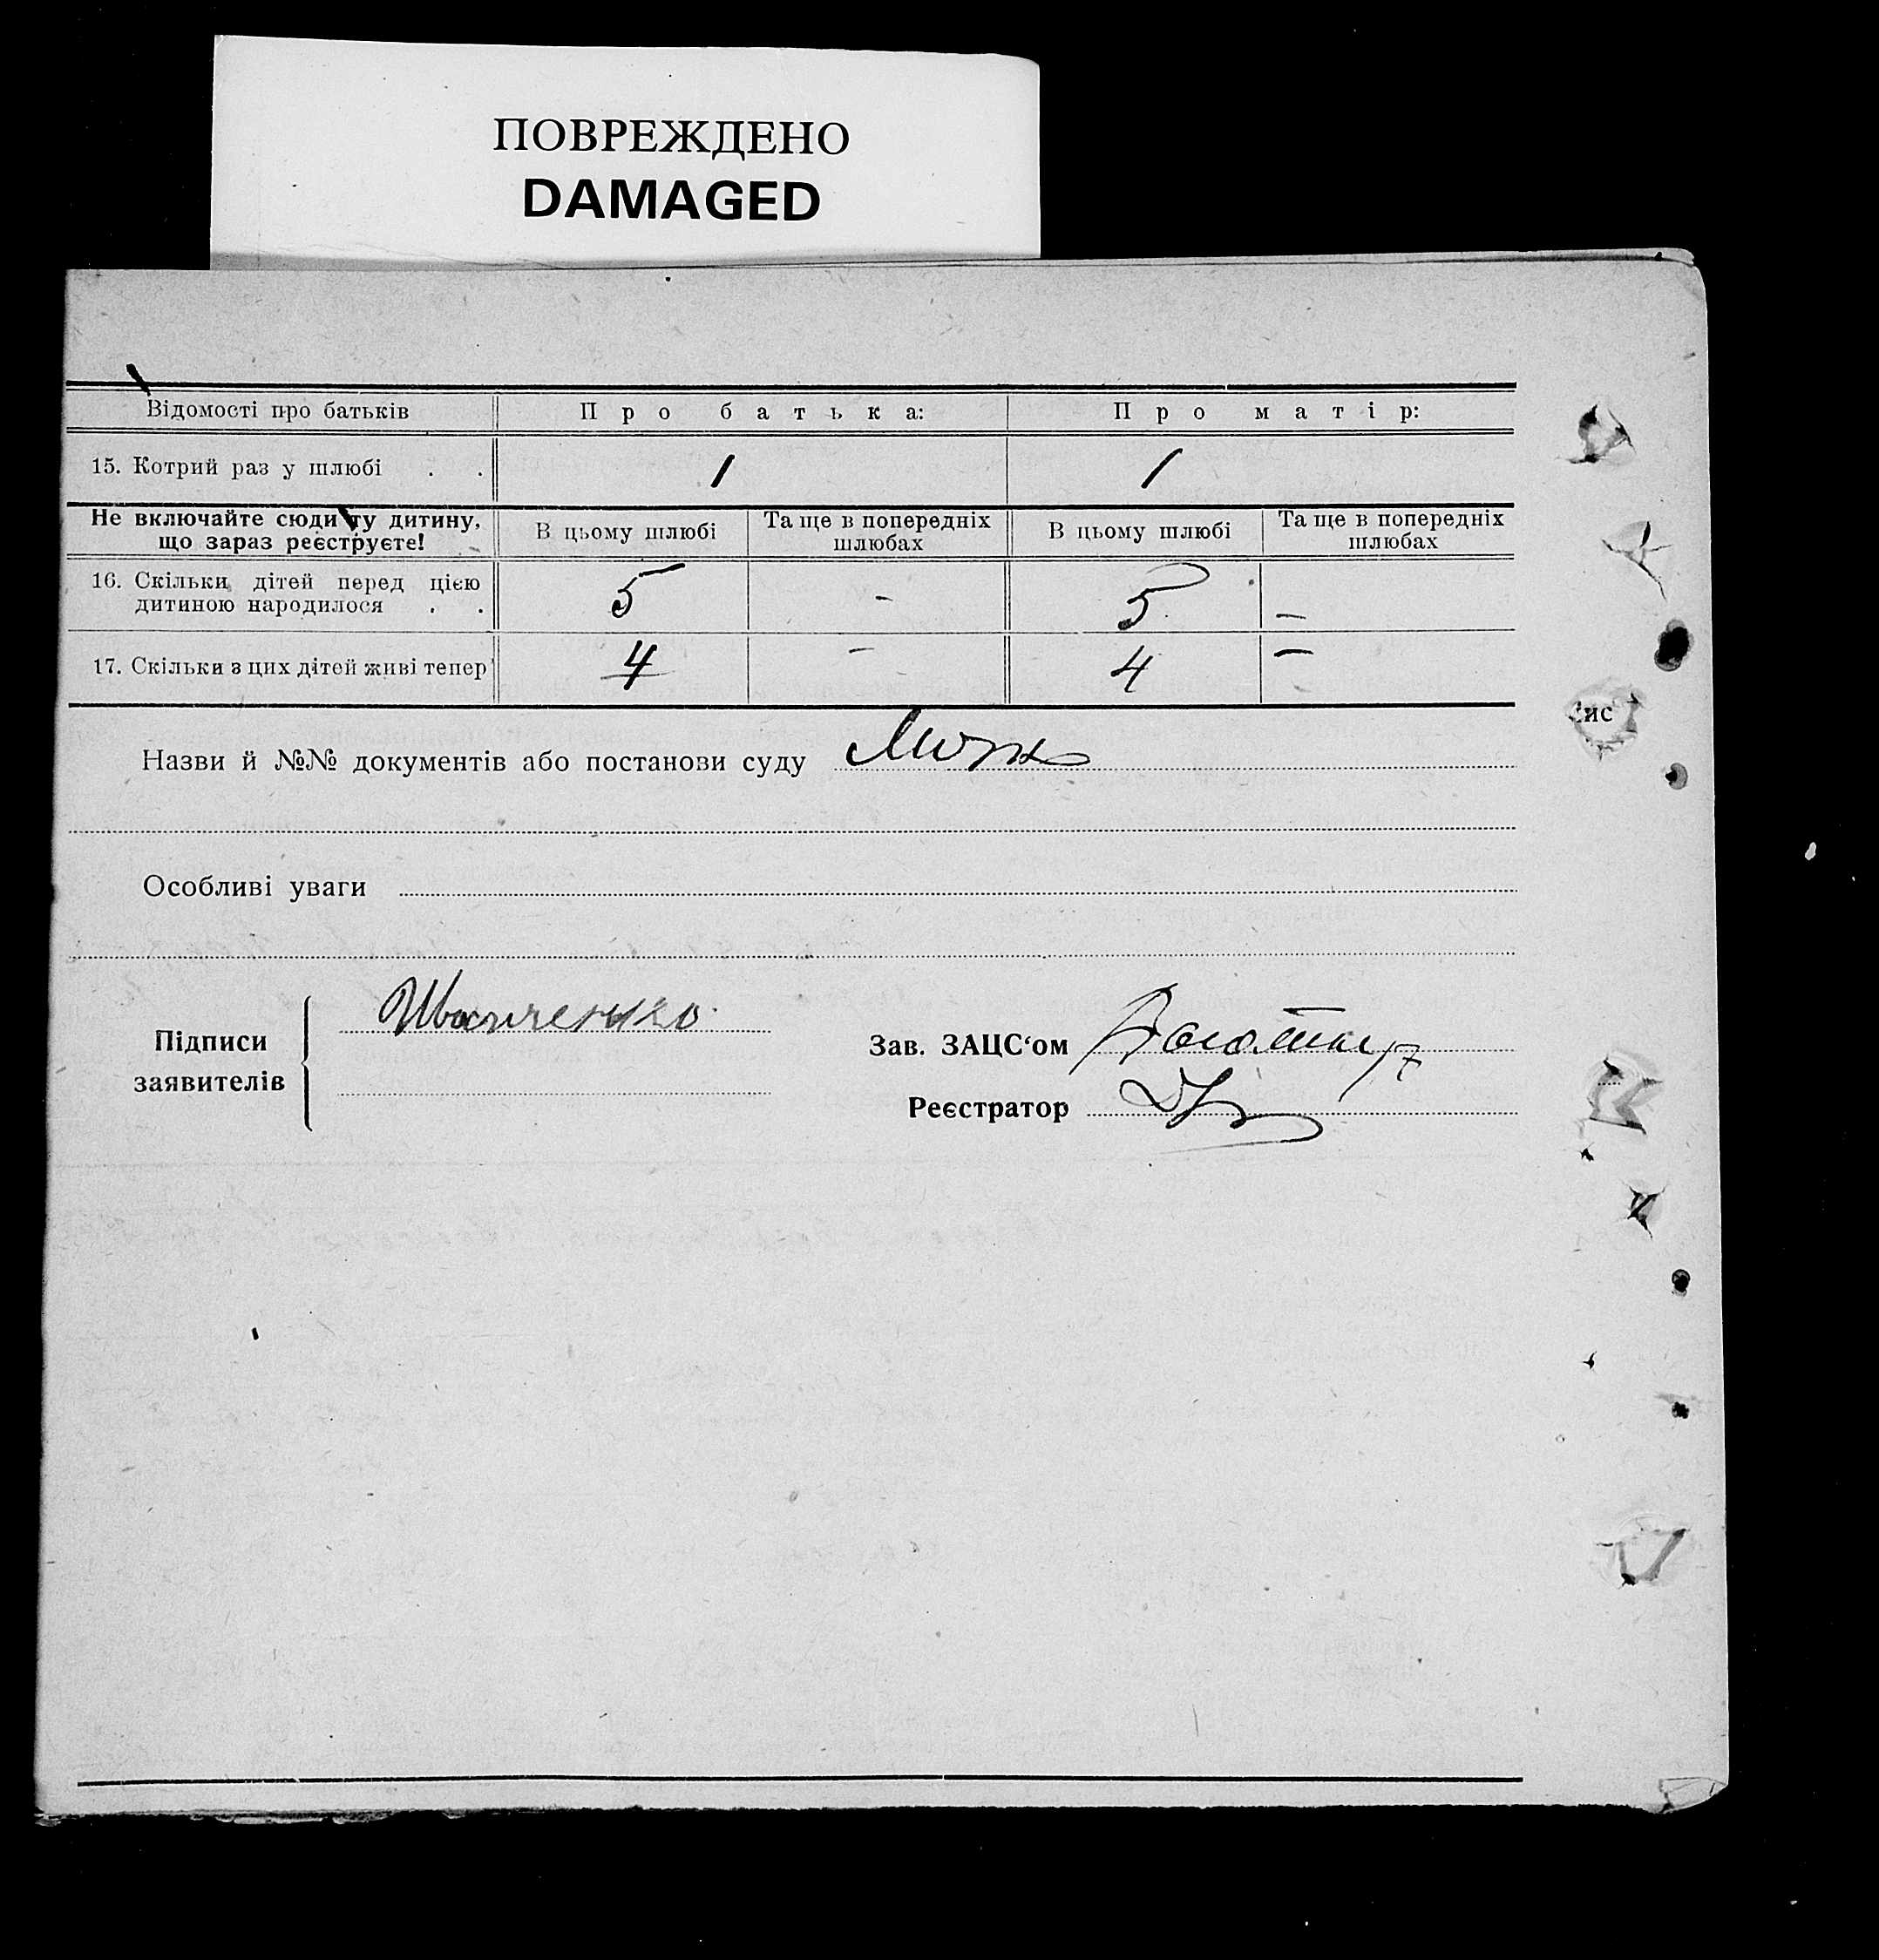 ПОВРЕЖДЕНО
DAMAGED
Відомості про батьків Про батька: Про матір:
15. Котрий раз у шлюбі . . 1 1
Не включайте сюди ту дитину, що зараз реєструєте! В цьому шлюбі Та ще в попередніх шлюбах В цьому шлюбі Та ще в попередніх шлюбах
16. Скільки дітей перед цією
дитиною народилося . . 5 - 5 -
17. Скільки з цих дітей живі тепер 4 - 4 -
Назви й №№ документів або постанови суду
Особливі уваги
Підписи заявителів Иванченко
Зав. ЗАЦС‘ом
Реєстратор
ис